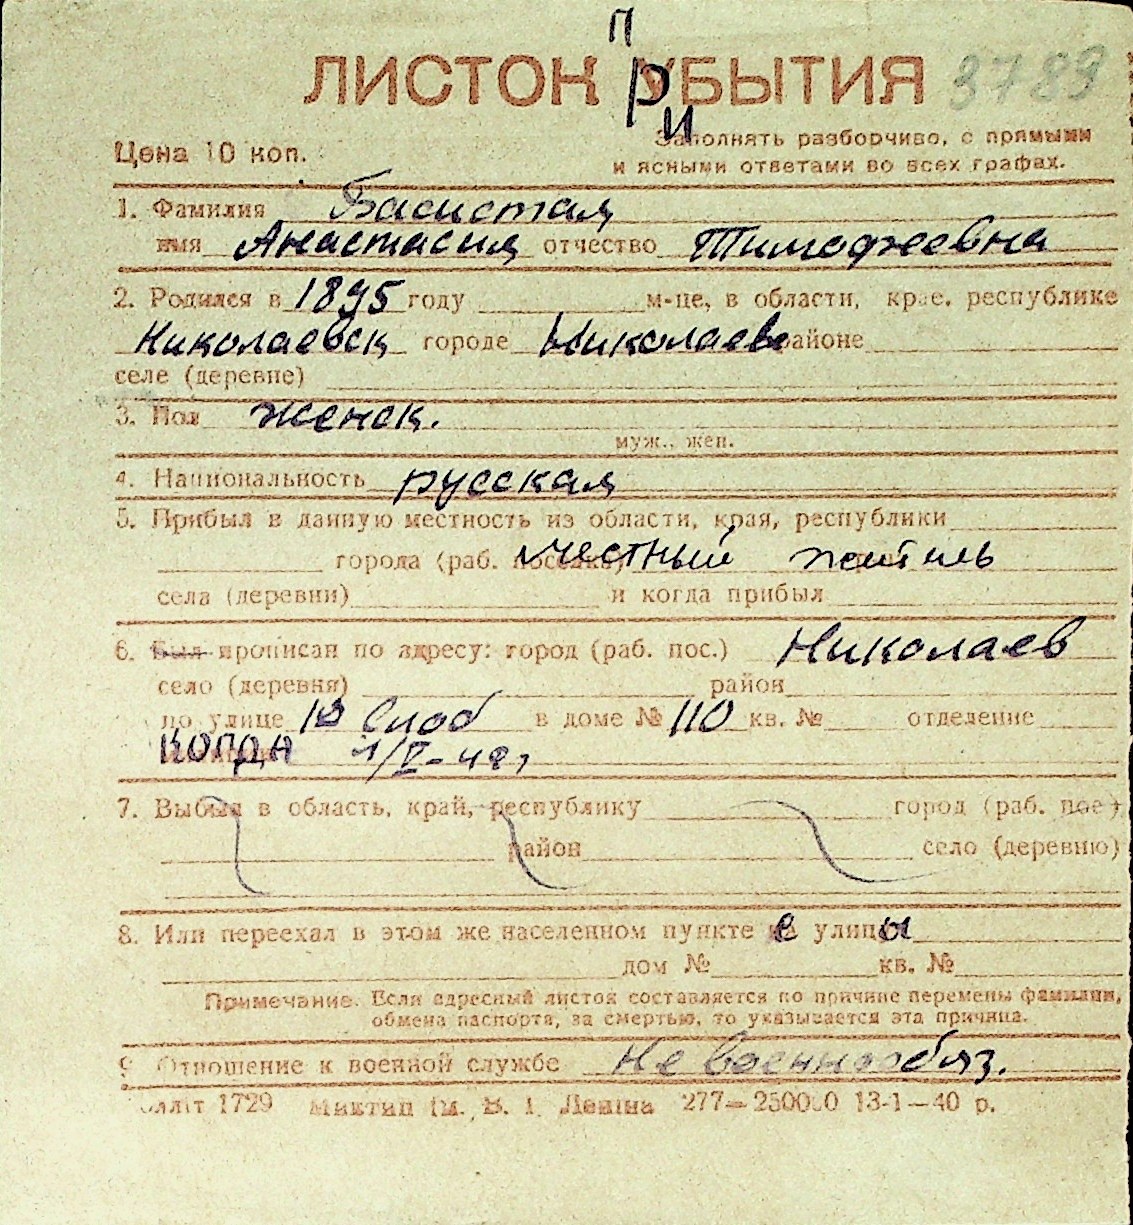 П
ЛИСТОК РИБЫТИЯ 3789
Цена 10 коп.
Заполнять разборчиво, с прямыми
и ясными ответами во всех графах.
1. Фамилия Басистая
имя Анастасия отчество Тимофеевна
2. Родился в 1895 году м-це, в области, крае, республике
Николаевск городе Николаеве районе
селе (деревне)
3. Пол женск.
муж., жен.
4. Национальность русская
5. Прибыл в данную местность из области, края, республики
города (раб. поселка) местный житель
села (деревни) и когда прибыл
6. Был прописан по адресу: город (раб. пос.) Николаев
село (деревня) район
по улице 10 Слоб в доме № 110 кв. № отделение
когда 1/V-42
7. Выбыл в область, край, республику город (раб. пос.)
район село (деревню)
8. Или переехал в этом же населенном пункте с улицы
дом № кв. №
Примечание. Если адресный листок составляется по причине перемены фамилии,
обмена паспорта, за смертью, то указывается эта причина.
9. Отношение к военной службе Не военнообяз.
1729 ім. В. І. Леніна 277—250000 13-1—40 р.